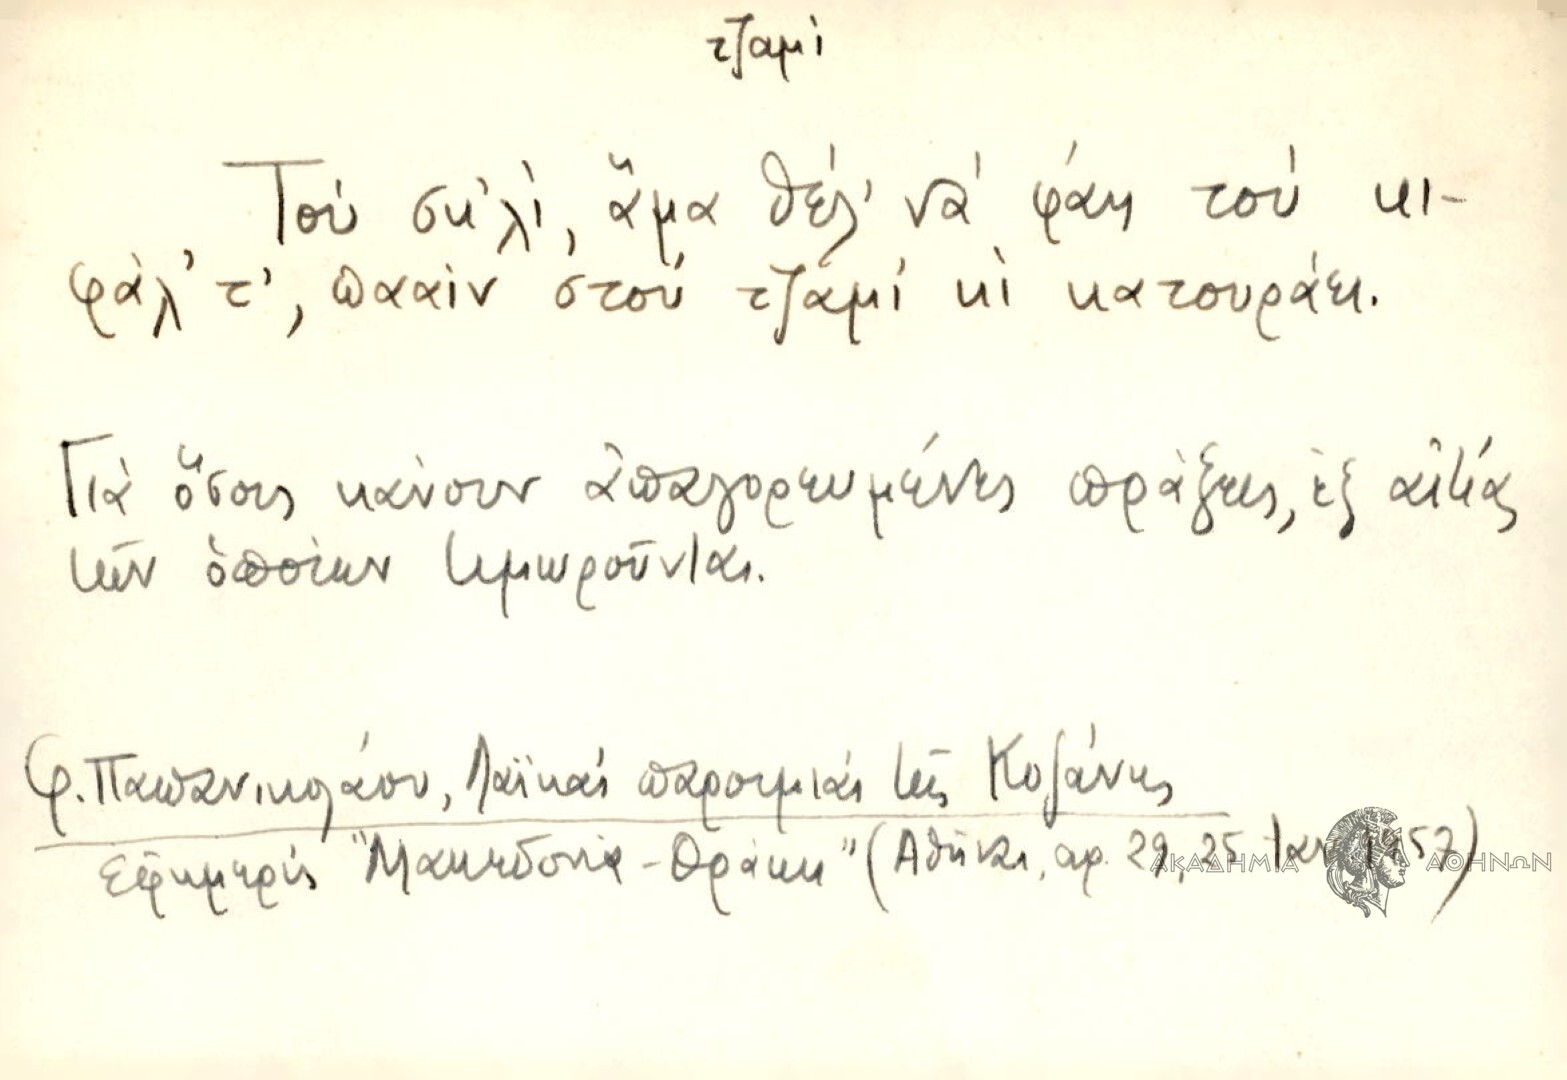 τζαμὶ
Τού σκ'λὶ, ἅμα θέλ' νά φάη τού κι-
φάλ' τ', πααίν στού τζαμί κὶ κατουράει.
Γιὰ ὅσους κάνουν ἀπαγορευμένες πράξεις, ἐξ αἰτίας
τῶν ὁποίων τιμωροῦνται.
Φ. Παπανικολάου, Λαϊκαί παροιμίαι τῆς Κοζάνης
Ἐφημερίς "Μακεδονία - Θράκη" (Ἀθῆναι, αρ. 29, 25 Ιαν 1957)
ΑΚΑΔΗΜΙΑ ΑΘΗΝΩΝ